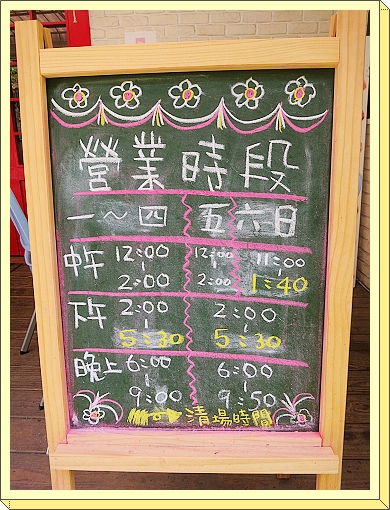 營業時段
一～四 五 六日
中午 12:00 12:00 11:00
| | |
2:00 2:00 1:40
下午 2:00 2:00
| |
5:30 5:30
晚上 6:00 6:00
| |
9:00 9:50
清場時間